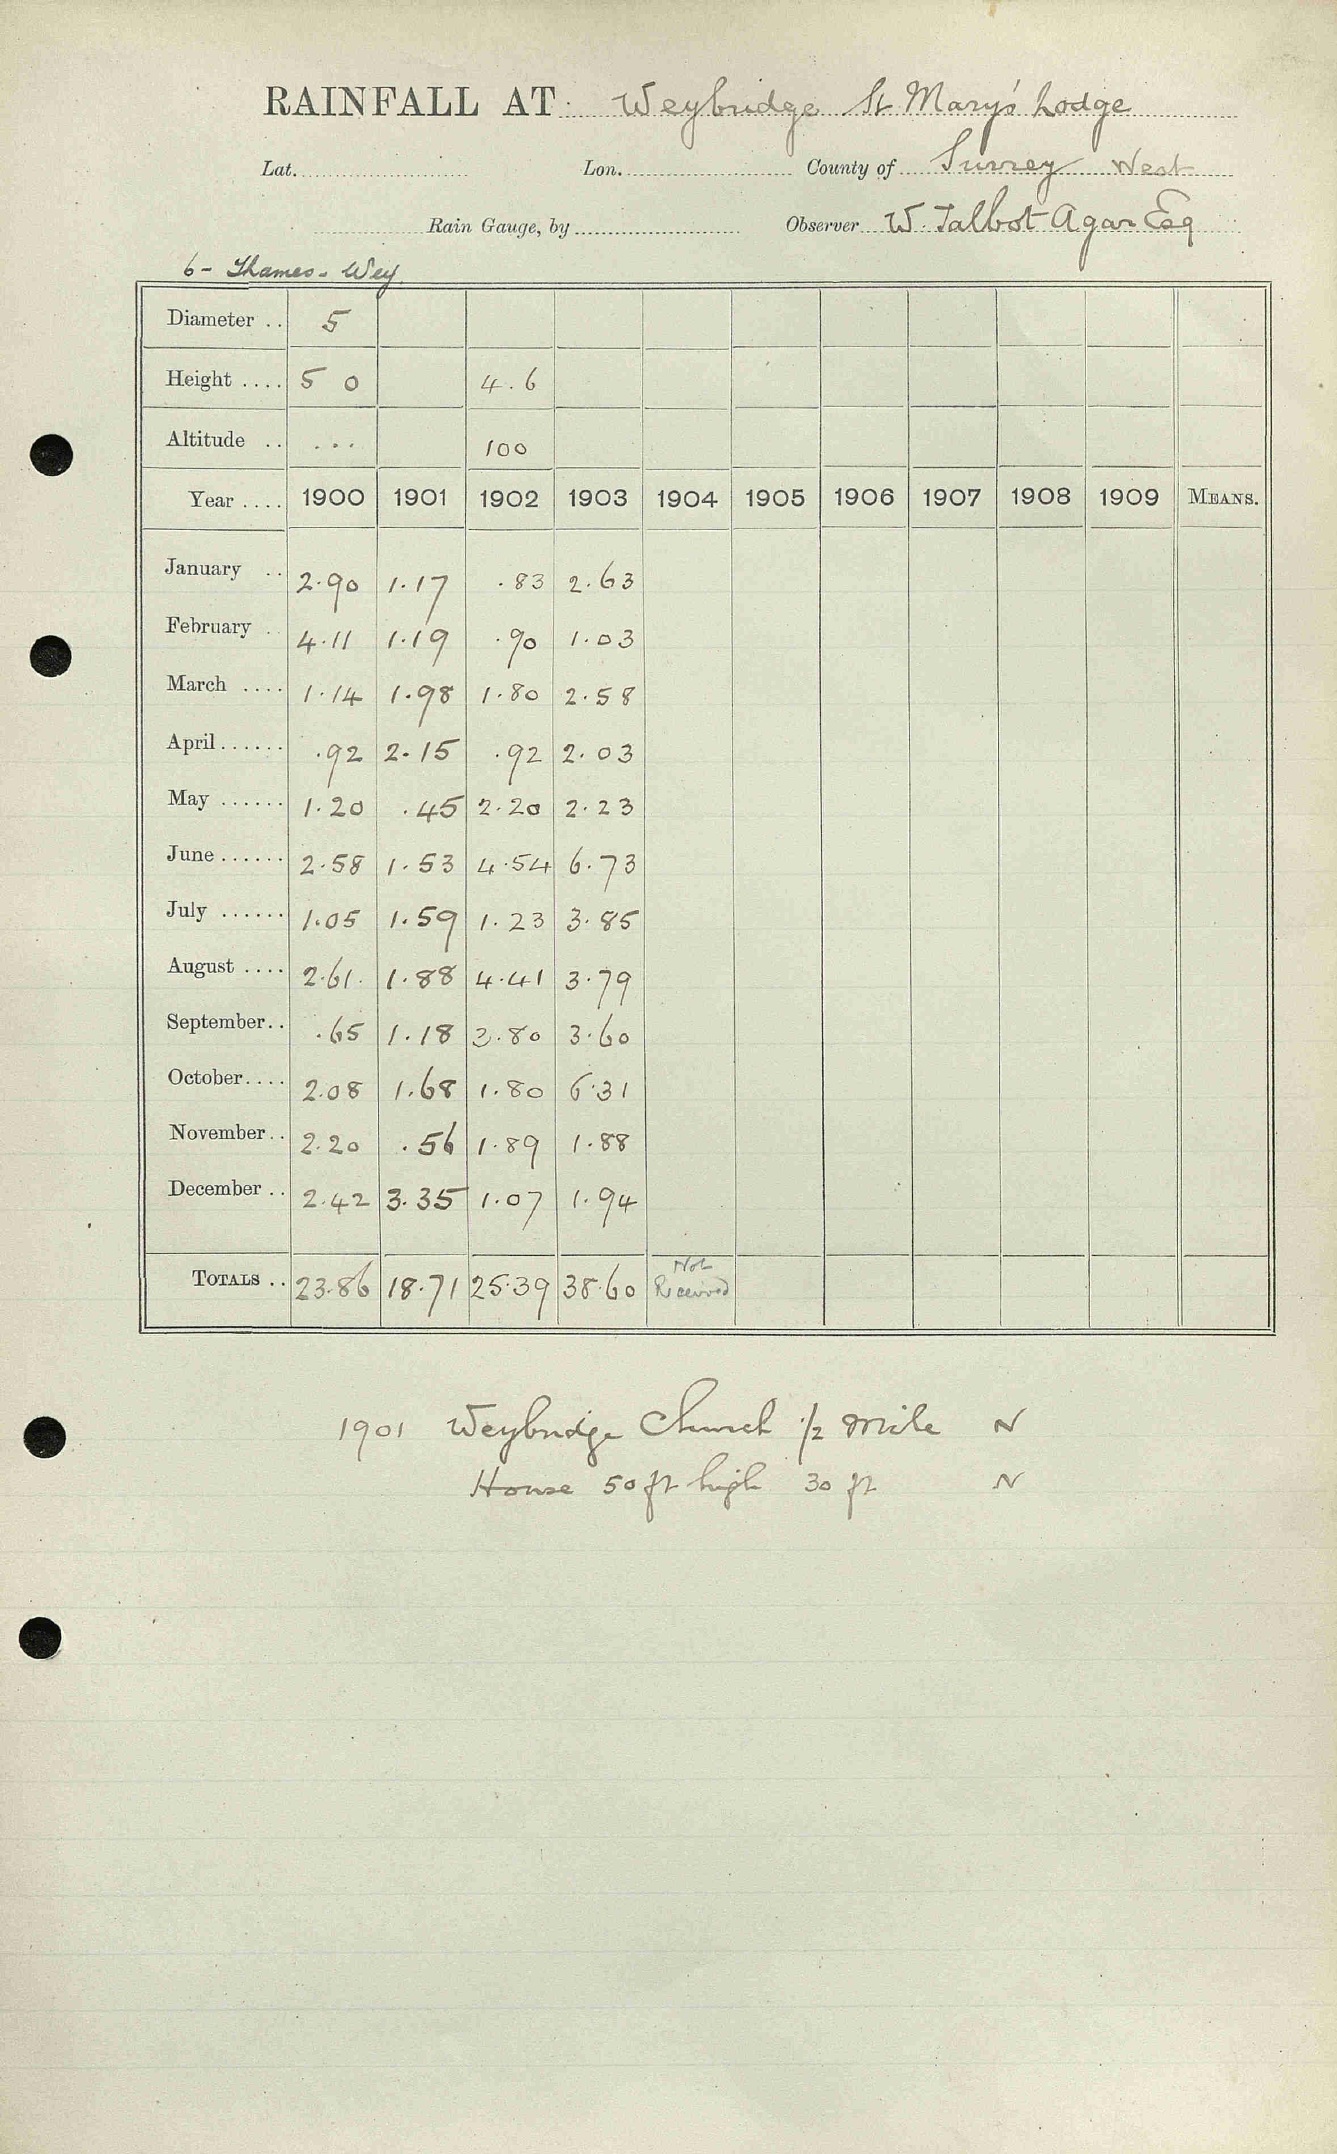 RAINFALL AT Weybridge St Mary's Lodge
Lat. Lon. County of Surrey West
Rain Gauge, by Observer W. Talbot Agar Esq
6 - Thames - Wey
Diameter .. 5
Height .... 5 0 4.6
Altitude .. ... 100
Year .... 1900 1901 1902 1903 1904 1905 1906 1907 1908 1909 MEANS.
January .. 2.90 1.17 .83 2.63
February .. 4.11 1.19 .90 1.03
March .... 1.14 1.98 1.80 2.58
April ...... .92 2.15 .92 2.03
May ...... 1.20 .45 2.20 2.23
June ...... 2.58 1.53 4.54 6.73
July ...... 1.05 1.59 1.23 3.85
August .... 2.61 1.88 4.41 3.79
September.. .65 1.18 3.80 3.60
October.... 2.08 1.68 1.80 6.31
November.. 2.20 .56 1.89 1.88
December .. 2.42 3.35 1.07 1.94
TOTALS .. 23.86 18.71 25.39 38.60 Not Received
1901 Weybridge Church 1/2 mile N
House 50 ft high 30 ft N